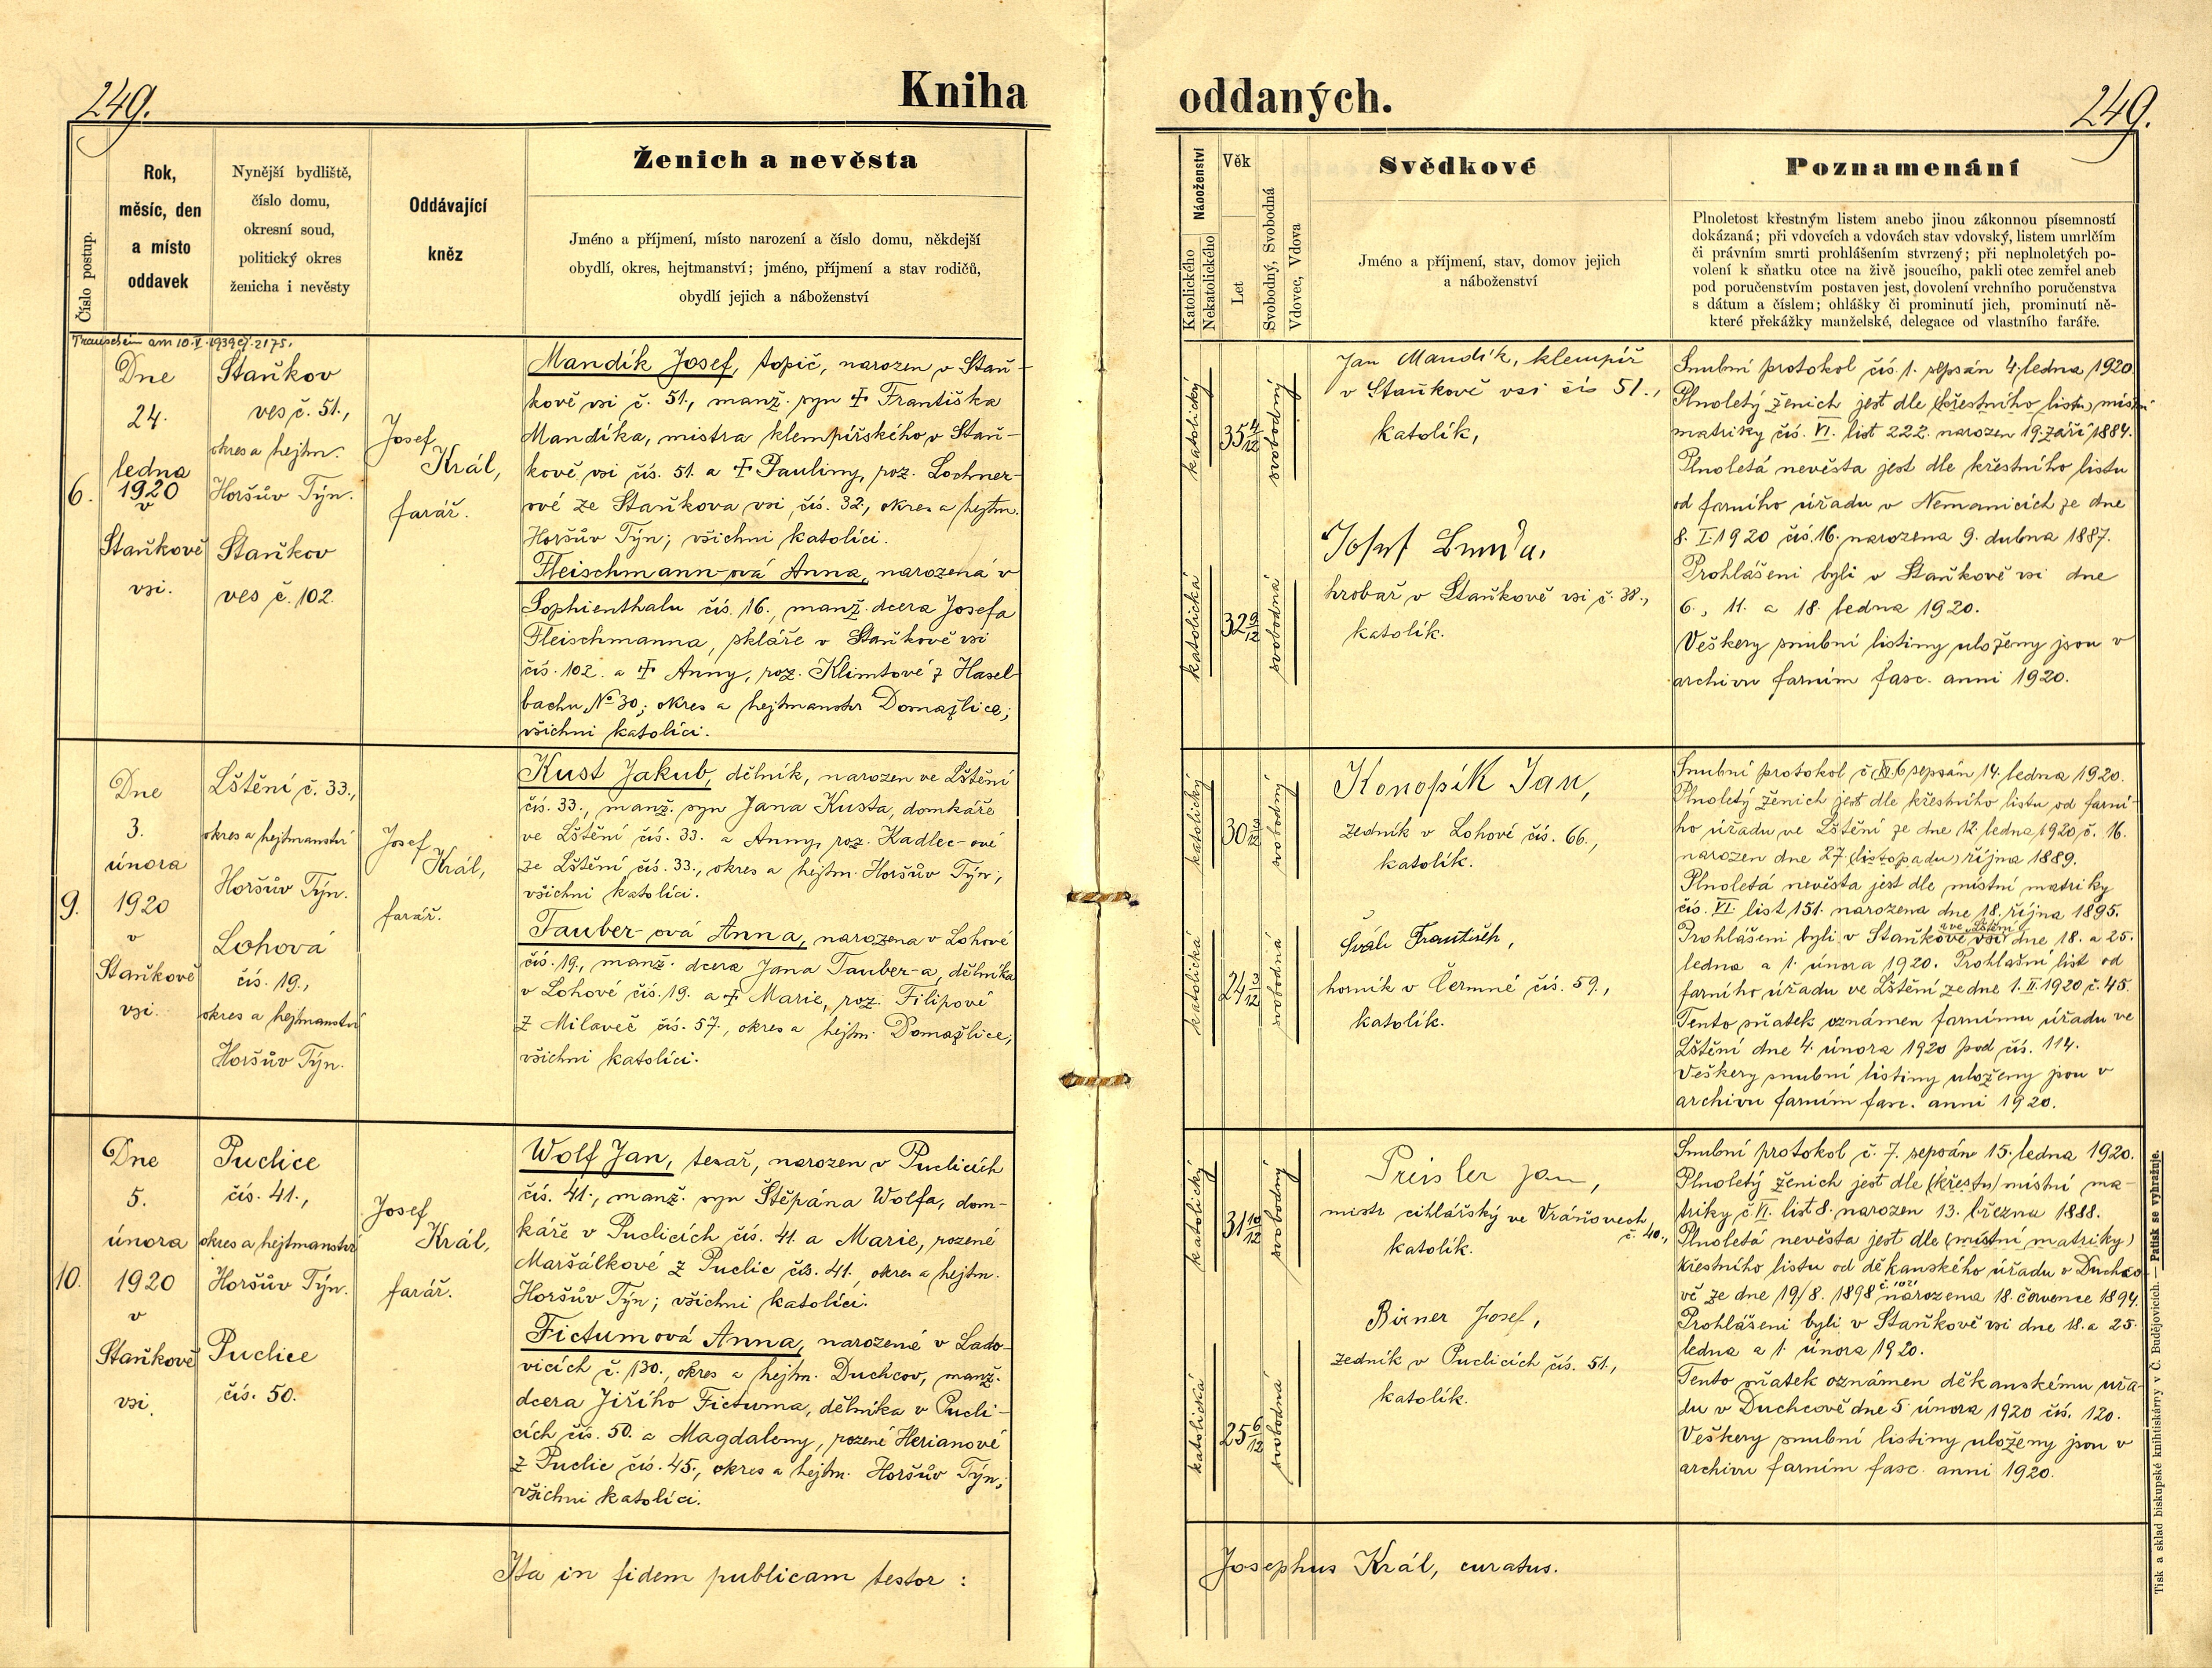 249.
Kniha oddaných.
249.
Číslo postup.
Rok,
měsíc, den
a místo
oddavek
Nynější bydliště,
číslo domu,
okresní soud,
politický okres
ženicha i nevěsty
Oddávající
kněz
Ženich a nevěsta
Jméno a příjmení, místo narození a číslo domu, někdejší
obydlí, okres, hejtmanství; jméno, příjmení a stav rodičů,
obydlí jejich a náboženství
Náboženství
Katolického
Nekatolického
Věk
Let
Svobodný, Svobodná
Vdovec, Vdova
Svědkové
Jméno a příjmení, stav, domov jejich
a náboženství
Poznamenání
Plnoletost křestným listem anebo jinou zákonnou písemností
dokázaná; při vdovcích a vdovách stav vdovský, listem umrlčím
či právním smrti prohlášením stvrzený; při neplnoletých po-
volení k sňatku otce na živě jsoucího, pakli otec zemřel aneb
pod poručenstvím postaven jest, dovolení vrchního poručenstva
s dátum a číslem; ohlášky či prominutí jich, prominutí ně-
které překážky manželské, delegace od vlastního faráře.
Trauschein am 10.V.1939 ej. 2175.
6.
Dne
24.
ledna
1920
v
Staňkově
vsi.
Staňkov
ves č. 51.,
okres a hejtm.
Horšův Týn.
Staňkov
ves č. 102.
Josef
Král,
farář.
Mandík Josef, topič, narozen v Staň-
kově vsi č. 51., manž. syn † Františka
Mandíka, mistra klempířského v Staň-
kově vsi čís. 51. a † Pauliny, roz. Lochner-
ové ze Staňkova vsi čís. 32., okres a hejtm.
Horšův Týn; všichni katolíci.
Fleischmann-ová Anna, narozená v
Sophienthalu čís. 16., manž. dcera Josefa
Fleischmanna, skláře v Staňkově vsi
čís. 102. a † Anny, roz. Klimtové z Hasel-
bachu № 30; okres a hejtmanstv Domažlice;
všichni katolíci.
katolický
35 4/12
svobodný
katolická
32 9/12
svobodná
Jan Mandík, klempíř
v Staňkově vsi čís 51.,
katolík,
Josef
hrobař v Staňkově vsi č. 38.,
katolík.
Snubní protokol čís. 1. sepsán 4. ledna 1920.
Plnoletý ženich jest dle (křestního listu) místní
matriky čís. VI. list 222. narozen 19. září 1884.
Plnoletá nevěsta jest dle křestního listu
od farního úřadu v Nemanicích ze dne
8. I. 1920 čís. 16. narozena 9. dubna 1887.
Prohlášeni byli v Staňkově vsi dne
6., 11. a 18. ledna 1920.
Veškery snubní listiny uloženy jsou v
archivu farním fasc. anni 1920.
9.
Dne
3.
února
1920
v
Staňkově
vsi.
Lštění č. 33.,
okres a hejtmanství
Horšův Týn.
Lohová
čís. 19.,
okres a hejtmanství
Horšův Týn.
Josef
Král,
farář.
Kust Jakub, dělník, narozen ve Lštění
čís. 33., manž. syn Jana Kusta, domkáře
ve Lštění čís. 33. a Anny, roz. Kadlec-ové
ze Lštění čís. 33., okres a hejtm. Horšův Týn;
všichni katolíci.
Tauber-ová Anna, narozena v Lohové
čís. 19., manž. dcera Jana Tauber-a, dělníka
v Lohové čís. 19. a † Marie, roz. Filipové
z Milaveč čís. 57., okres a hejtm. Domažlice;
všichni katolíci.
katolický
30 3/12
svobodný
katolická
24 3/12
svobodná
Konopík Jan,
zedník v Lohové čís. 66.,
katolík.
František,
horník v Čermné čís. 59.,
katolík.
Snubní protokol č. 6 sepsán 14. ledna 1920.
Plnoletý ženich jest dle křestního listu od farní-
ho úřadu ve Lštění ze dne 12. ledna 1920 č. 16.
narozen dne 27. (listopadu) října 1889.
Plnoletá nevěsta jest dle místní matriky
čís. VI. list 151. narozena dne 18. října 1895.
a ve Lštění
Prohlášeni byli v Staňkově vsi dne 18. a 25.
ledna a 1. února 1920. Prohlašní list od
farního úřadu ve Lštění ze dne 1. II. 1920 č. 45.
Tento sňatek oznámen farnímu úřadu ve
Lštění dne 4. února 1920 pod čís. 114.
Veškery snubní listiny uloženy jsou v
archivu farním fasc. anni 1920.
10.
Dne
5.
února
1920
v
Staňkově
vsi.
Puclice
čís. 41.,
okres a hejtmanství
Horšův Týn.
Puclice
čís. 50.
Josef
Král,
farář.
Wolf Jan, tesař, narozen v Puclicích
čís. 41., manž. syn Štěpána Wolfa, dom-
káře v Puclicích čís. 41. a Marie, rozené
Maršálkové z Puclic čís. 41., okres a hejtm.
Horšův Týn; všichni katolíci.
Fictumová Anna, narozené v Lado-
vicích č. 130., okres a hejtm. Duchcov, manž.
dcera Jiřího Fictuma, dělníka v Pucli-
cích čís. 50. a Magdaleny, rozené Herianové
z Puclic čís. 45., okres a hejtm. Horšův Týn;
všichni katolíci.
katolický
31 10/12
svobodný
katolická
25 6/12
svobodná
Preisler Jan,
mistr cihlářský ve Vránovech
č. 40.,
katolík.
Birner Josef,
zedník v Puclicích čís. 51.,
katolík.
Snubní protokol č. 7. sepsán 15. ledna 1920.
Plnoletý ženich jest dle (křestn) místní ma-
triky č. VI. list 8. narozen 13. března 1888.
Plnoletá nevěsta jest dle (místní matriky)
křestního listu od děkanského úřadu v Duchco-
č. 1021
vě ze dne 19/8. 1898 narozena 18. července 1894.
Prohlášeni byli v Staňkově vsi dne 18. a 25.
ledna a 1. února 1920.
Tento sňatek oznámen děkanskému úřa-
du v Duchcově dne 5 února 1920 čís. 120.
Veškery snubní listiny uloženy jsou v
archivu farním fasc. anni 1920.
Ita in fidem publicam testor :
Josephus Král, curatus.
Tisk a sklad biskupské knihtiskárny v Č. Budějovicích. — Patisk se vyhražuje.